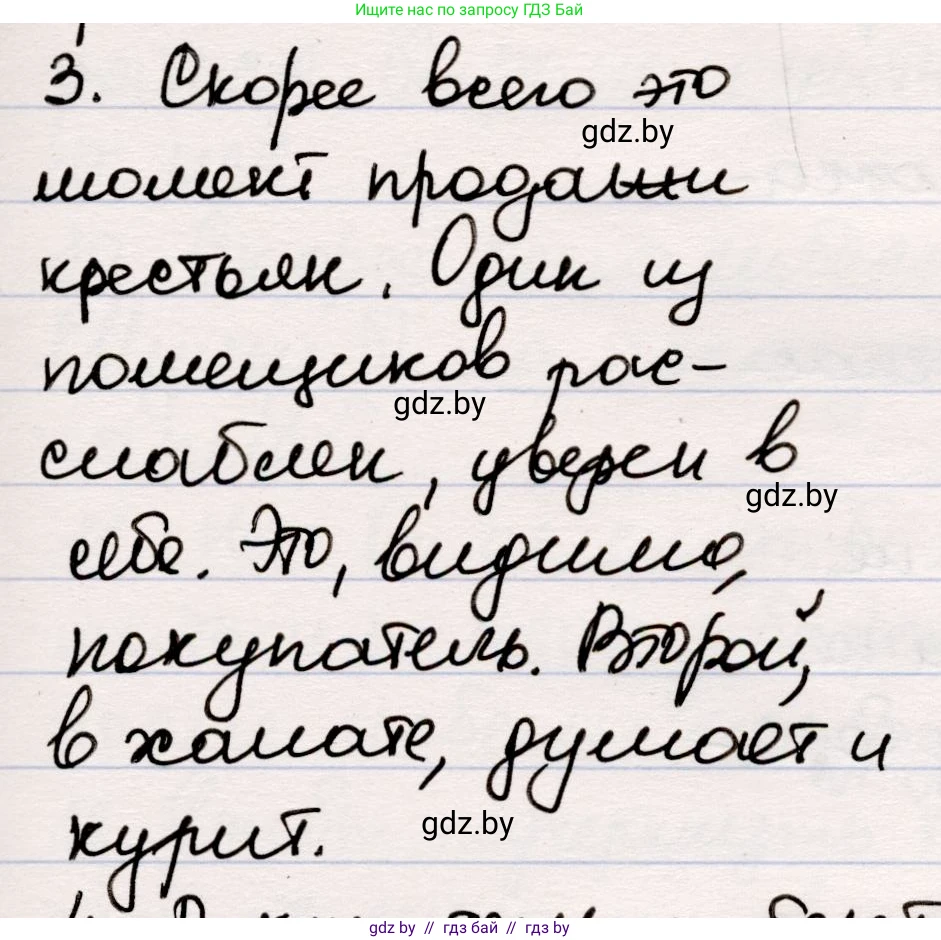 Ищите нас по запросу ГДЗ Бай
3. Скорее всего это
gdz.by
момент продажи
крестьян. Один из
помещиков рас-
gdz.by
слаблен, уверен в
gdz.by
себе. Это, видимо,
покупатель. Второй,
в халате, думает и
gdz.by
курит.
gdz.by // гдз бай // gdz.by